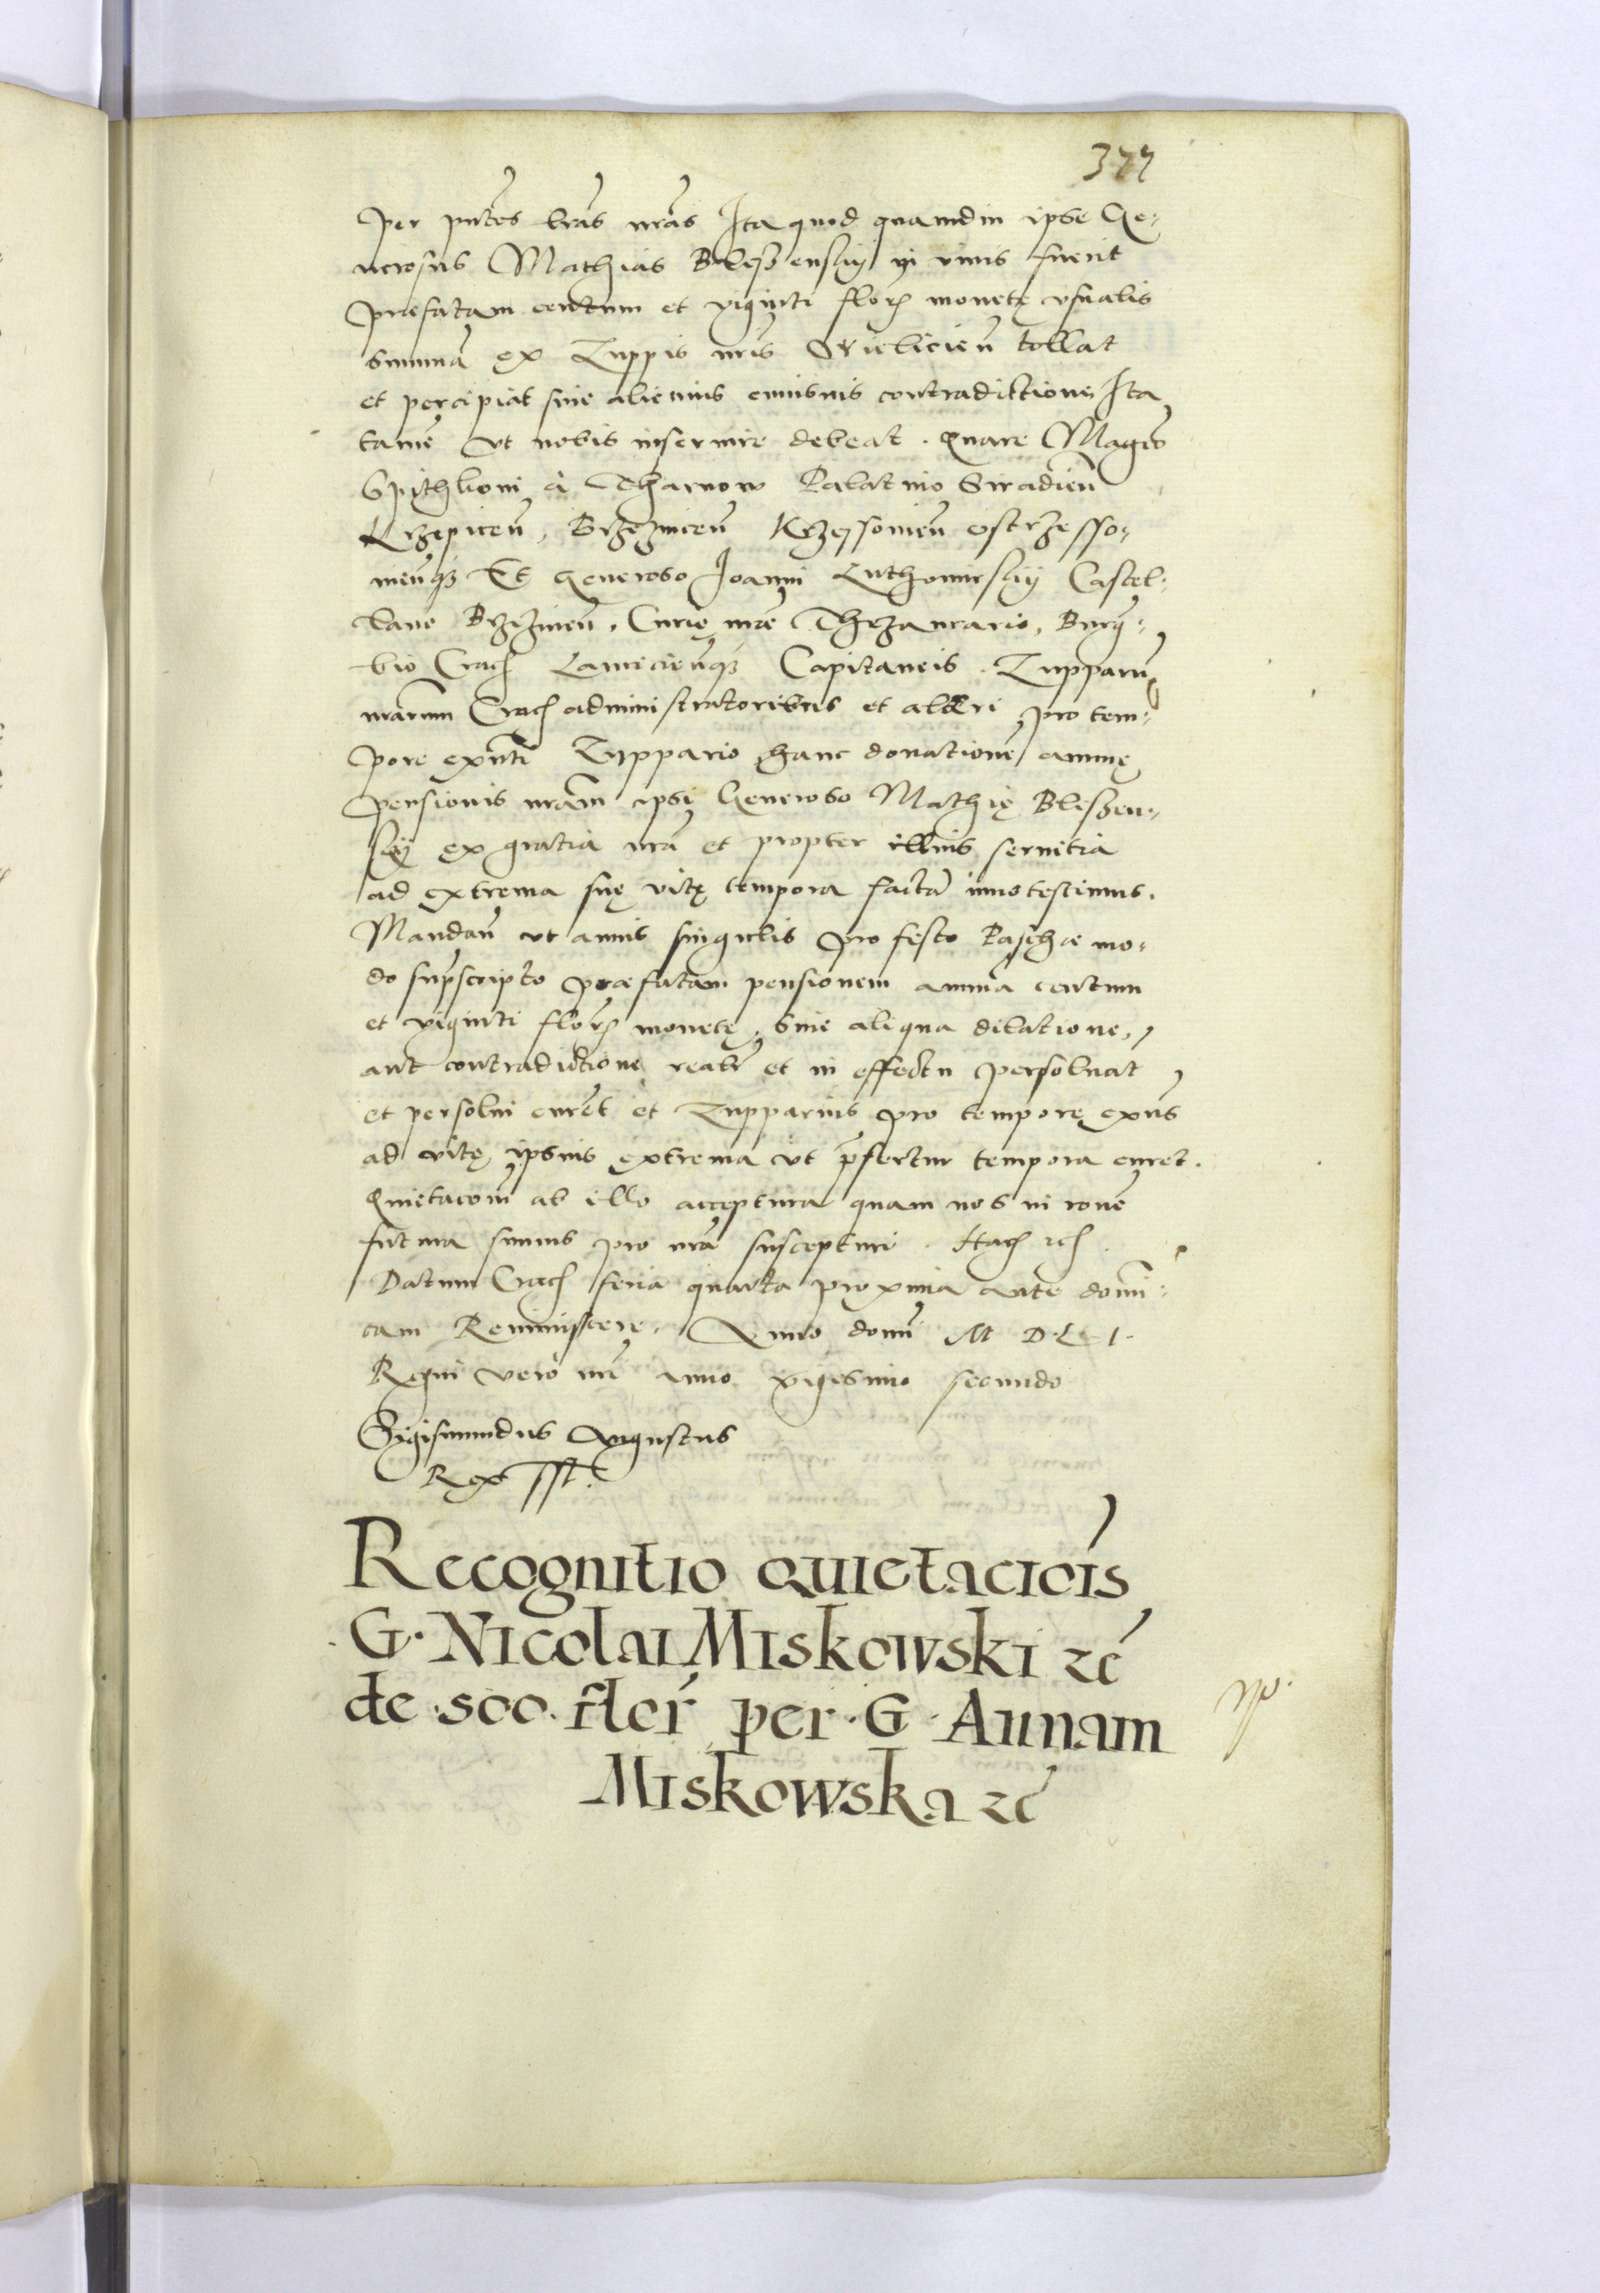 377
per pñtes lras nras Ita quod quamdiu ipse Ge-
nerosus Mathias Blesszenskij in vivis fuerit
praefatam centum et viginti flor monetę vsualis
summã ex Zuppis nris Wieliciẽn tollat
et percipiat sine alicuius cuiusvis contradictione Ita
tamẽ vt nobis inservire debeat. Quare Magco
Spithkoni à Tharnow Palatino Siradieñ
Krzepiceñ, Brzezniceñ Krzessovieñ ostrzesso-
vieñq Et Generoso Joanni Luthomirskij Castel-
lano Brzezineñ, Curię nrae Thezaurario, Burg-
bio Crac Lancicieñq Capitaneis. Zupparũ
nrarum Crac administratoribus et alteri pro tem-
pore exñti Zuppario hanc donationẽ annuę
pensionis nram ipsi Generoso Mathię Bleszen-
skij ex gratia nrã et propter illius servitia
ad extrema suę vitę tempora factã innotescimus.
Mandañ vt annis singulis pro festo Paschae mo-
do suprascripto praefatam pensionem annuã centum
et viginti flor monetę, sine aliqua dilatione,
aut contradictione realr et in effectu persolvat
et persolvi curet et Zupparius pro tempore exñs
ad vitę ipsius extrema vt pfertur tempora curet.
Quietacoñ ab illo accepturã quam nos in rone
futura sumus pro nrã suscepturi. Hac rc
Datum Crac feria quarta proxima ante domi-
cam Reminiscere. Anno domi M D L I.
Regni vero nri anno vigesimo secundo
Sigismundus Augustus
Rex sst.
Recognitio quietaciois
G. Nicolai Miskowski zc
de .500. flor per .G. Annam
Miskowska zc